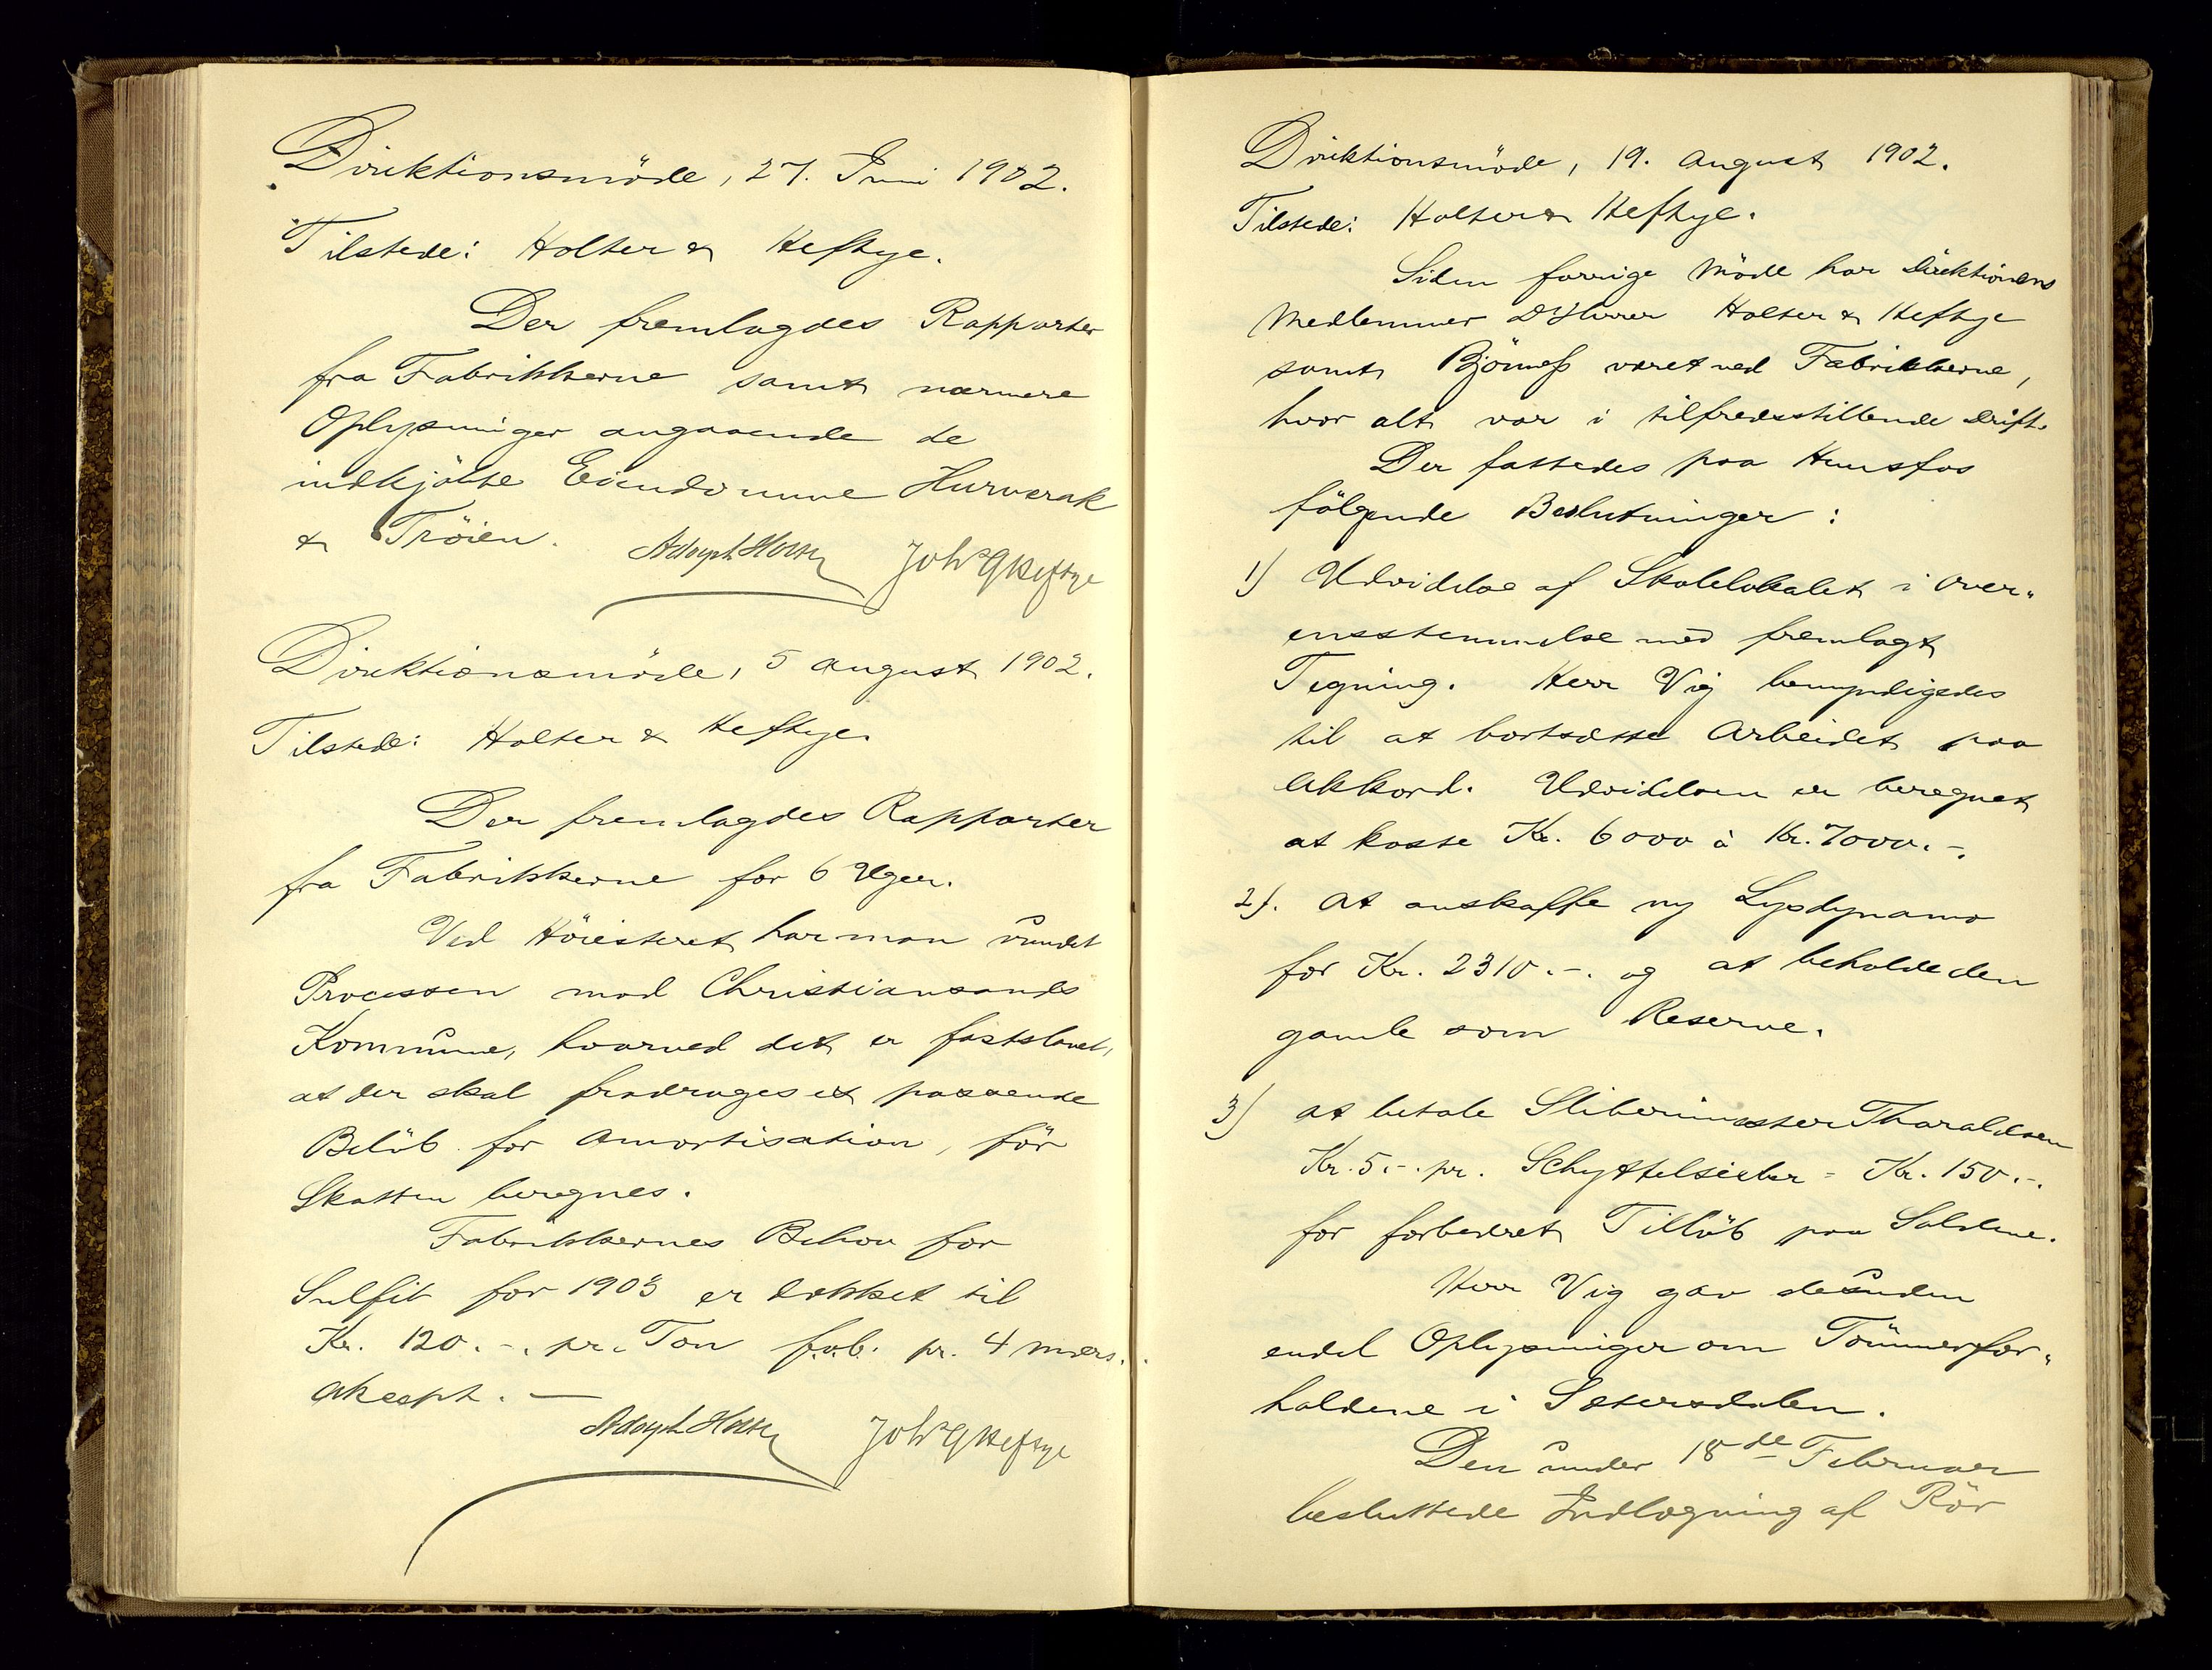 Direktionsmöde, 27. Juni 1902.
Tilstede: Holter & Heftye.
Der fremlagdes Rapporter
fra Fabrikkerne samt nærmere
Oplysninger angaaende de
indkjöbte Eiendomme Hurverak
& Tröien.
Adolph Holter Joh's G Heftye
Direktionsmöde, 5 August 1902.
Tilstede: Holter & Heftye.
Der fremlagdes Rapporter
fra Fabrikkerne for 6 Uger.
Ved Höiesteret har man vundet
Processen mod Christiansands
Kommune, hvorved det er fastslaaet,
at der skal fradrages et passende
Belöb for Amortisation, för
Skatten beregnes.
Fabrikkernes Behov for
Sulfit for 1903 er dækket til
Kr. 120.-. pr. Ton f.o.b. pr. 4 mdrs.
Akcept. —
Adolph Holter Joh's G Heftye
Direktionsmöde, 19. August 1902.
Tilstede: Holter & Heftye.
Siden forrige Möde har Direktionens
Medlemmer D'Herrer Holter & Heftye
samt Björneß været ved Fabrikkerne,
hvor alt var i tilfredsstillende Drift.
Der fattedes paa Hunsfos
fölgende Beslutninger:
1) Udvidelse af Skolelokalet i Over-
ensstemmelse med fremlagt
Tegning. Herr Vig bemyndigedes
til at bortsætte Arbeidet paa
Akkord. Udvidelsen er beregnet
at koste Kr. 6000 à Kr. 7000.-.
2). At anskaffe ny Lysdynamo
for Kr. 2310.-. og at beholde den
gamle som Reserve.
3) at betale Slibermester Tharaldsen
Kr. 5.-. pr. = Kr. 150.-.
for forbedret Tillöb paa Soldene.
Herr Vig gav desuden
endel Oplysninger om Tömmerfor-
holdene i Sætersdalen.
Den under 18de Februar
besluttede Indlægning af Rör